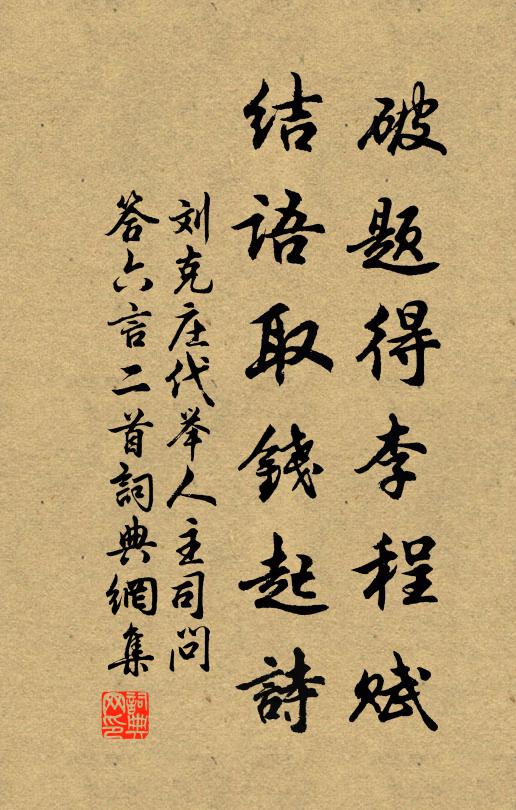 破题得李程赋
结语取錢起詩
刘克庄代举人主司问
答六言二首詞典網集
詞典网印